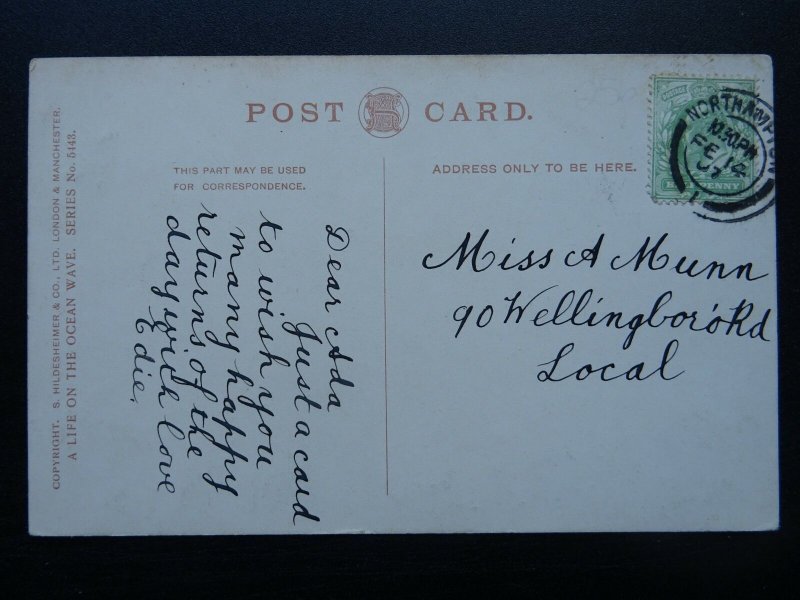 POST CARD.
THIS PART MAY BE USED
FOR CORRESPONDENCE.
ADDRESS ONLY TO BE HERE.
COPYRIGHT. S. HILDESHEIMER & CO., LTD. LONDON & MANCHESTER.
A LIFE ON THE OCEAN WAVE. SERIES No. 5443.
Dear Ada
Just a card
to wish you
many happy
returns of the
day with love
Edie.
Miss A Munn
90 Wellingboro' Rd
Local
POSTAGE
HALFPENNY
NORTHAMPTON
10.30PM
FE 14
07